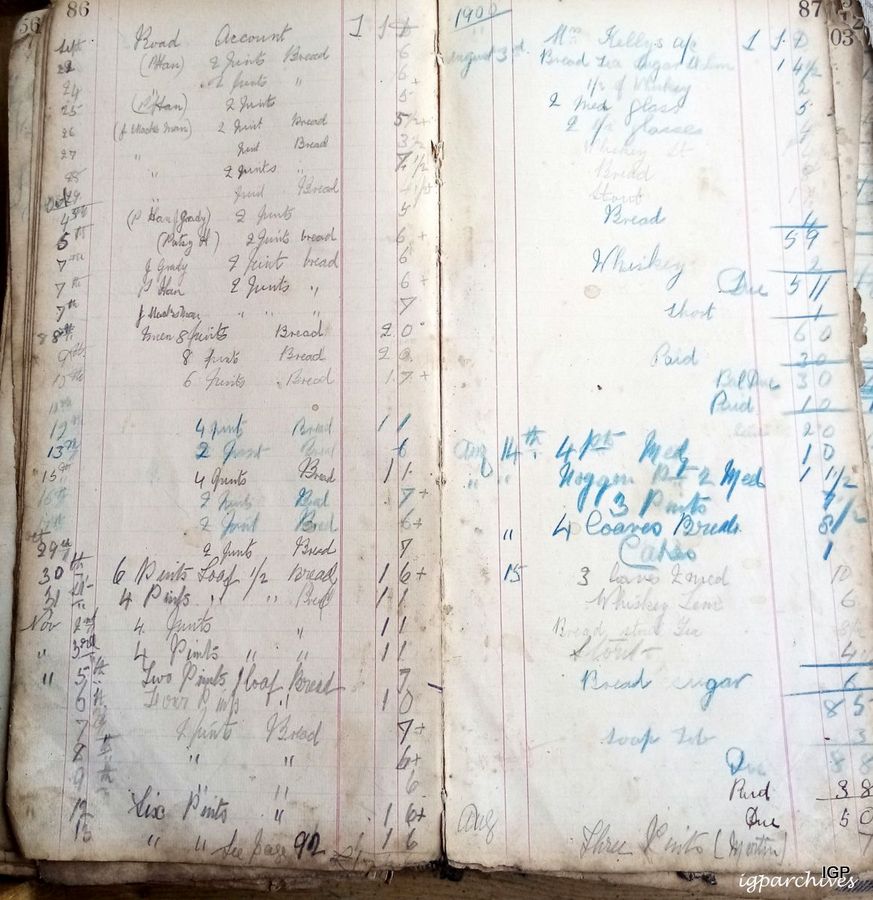 86
Road Account 1 S D
Sept
22 (P Han) 2 Pints Bread 6
24 2 Pints " 6
25 (P Han) 2 Pints 5
26 2 Pint Bread 5
27 " Pint Bread 3
28 " 2 Pints " 7 1/2
29 " Pint Bread
4th (P Han J Grady) 2 Pints 5
5th (Patsy H) 2 Pints bread 6 +
7th J Grady 2 Pint bread 6
7th P Han 2 Pints " 6 +
7th " " 7
8th men 8 pints Bread 2 0
9th 8 pints Bread 2 0
6 Pints Bread 1 7 +
11th
12th 4 pint Bread 1 1
13th 2 Pint Bread 6
15th 4 Pints Bread 1 1
16th 2 Pints Bread 7 +
2 Pint Bread 6 +
Oct
29th 2 Pints Bread 7
30 6 Pints Loaf 1/2 Bread 1 6 +
31 4 Pints " " Bread 1 1
Nov 2nd 4 Pints " 1 1
" 3rd 4 Pints " " 1 1
" 5 Two Pints 1 loaf Bread 7
6 Four Pints " 1 0
7 2 pints Bread 7 +
8 " " 6 +
9 " 6
12 Six Pints " 1 6 +
13 " " 1 6
See Page 92
1900
87
03
Mrs Kellys a/c 1 S D
August 3rd Bread Tea Sugar 1 4 1/2
1/2 of Whiskey 2
2 Med glass 5
2 1/2 glasses
Whiskey
Bread
Stout
Bread 4
5 9
Whiskey 2
Due 5 11
Short 1
6 0
Paid 3 0
Bal Due 3 0
Paid 1 0
2 0
Aug 14th 4 Pts Med 1 0
" " Noggin 2 Med 1 1/2
3 Pints
" 4 loaves Bread 8 1/2
Cakes 1
15 3 loaves 2 med 10
Whiskey Lem 6
Bread Tea
Stout 4
Bread sugar 6
8 5
Soap 3
Due 8 8
Paid 3 8
Due 5 0
Aug Three Pints (Martin) 7
IGP
igparchives